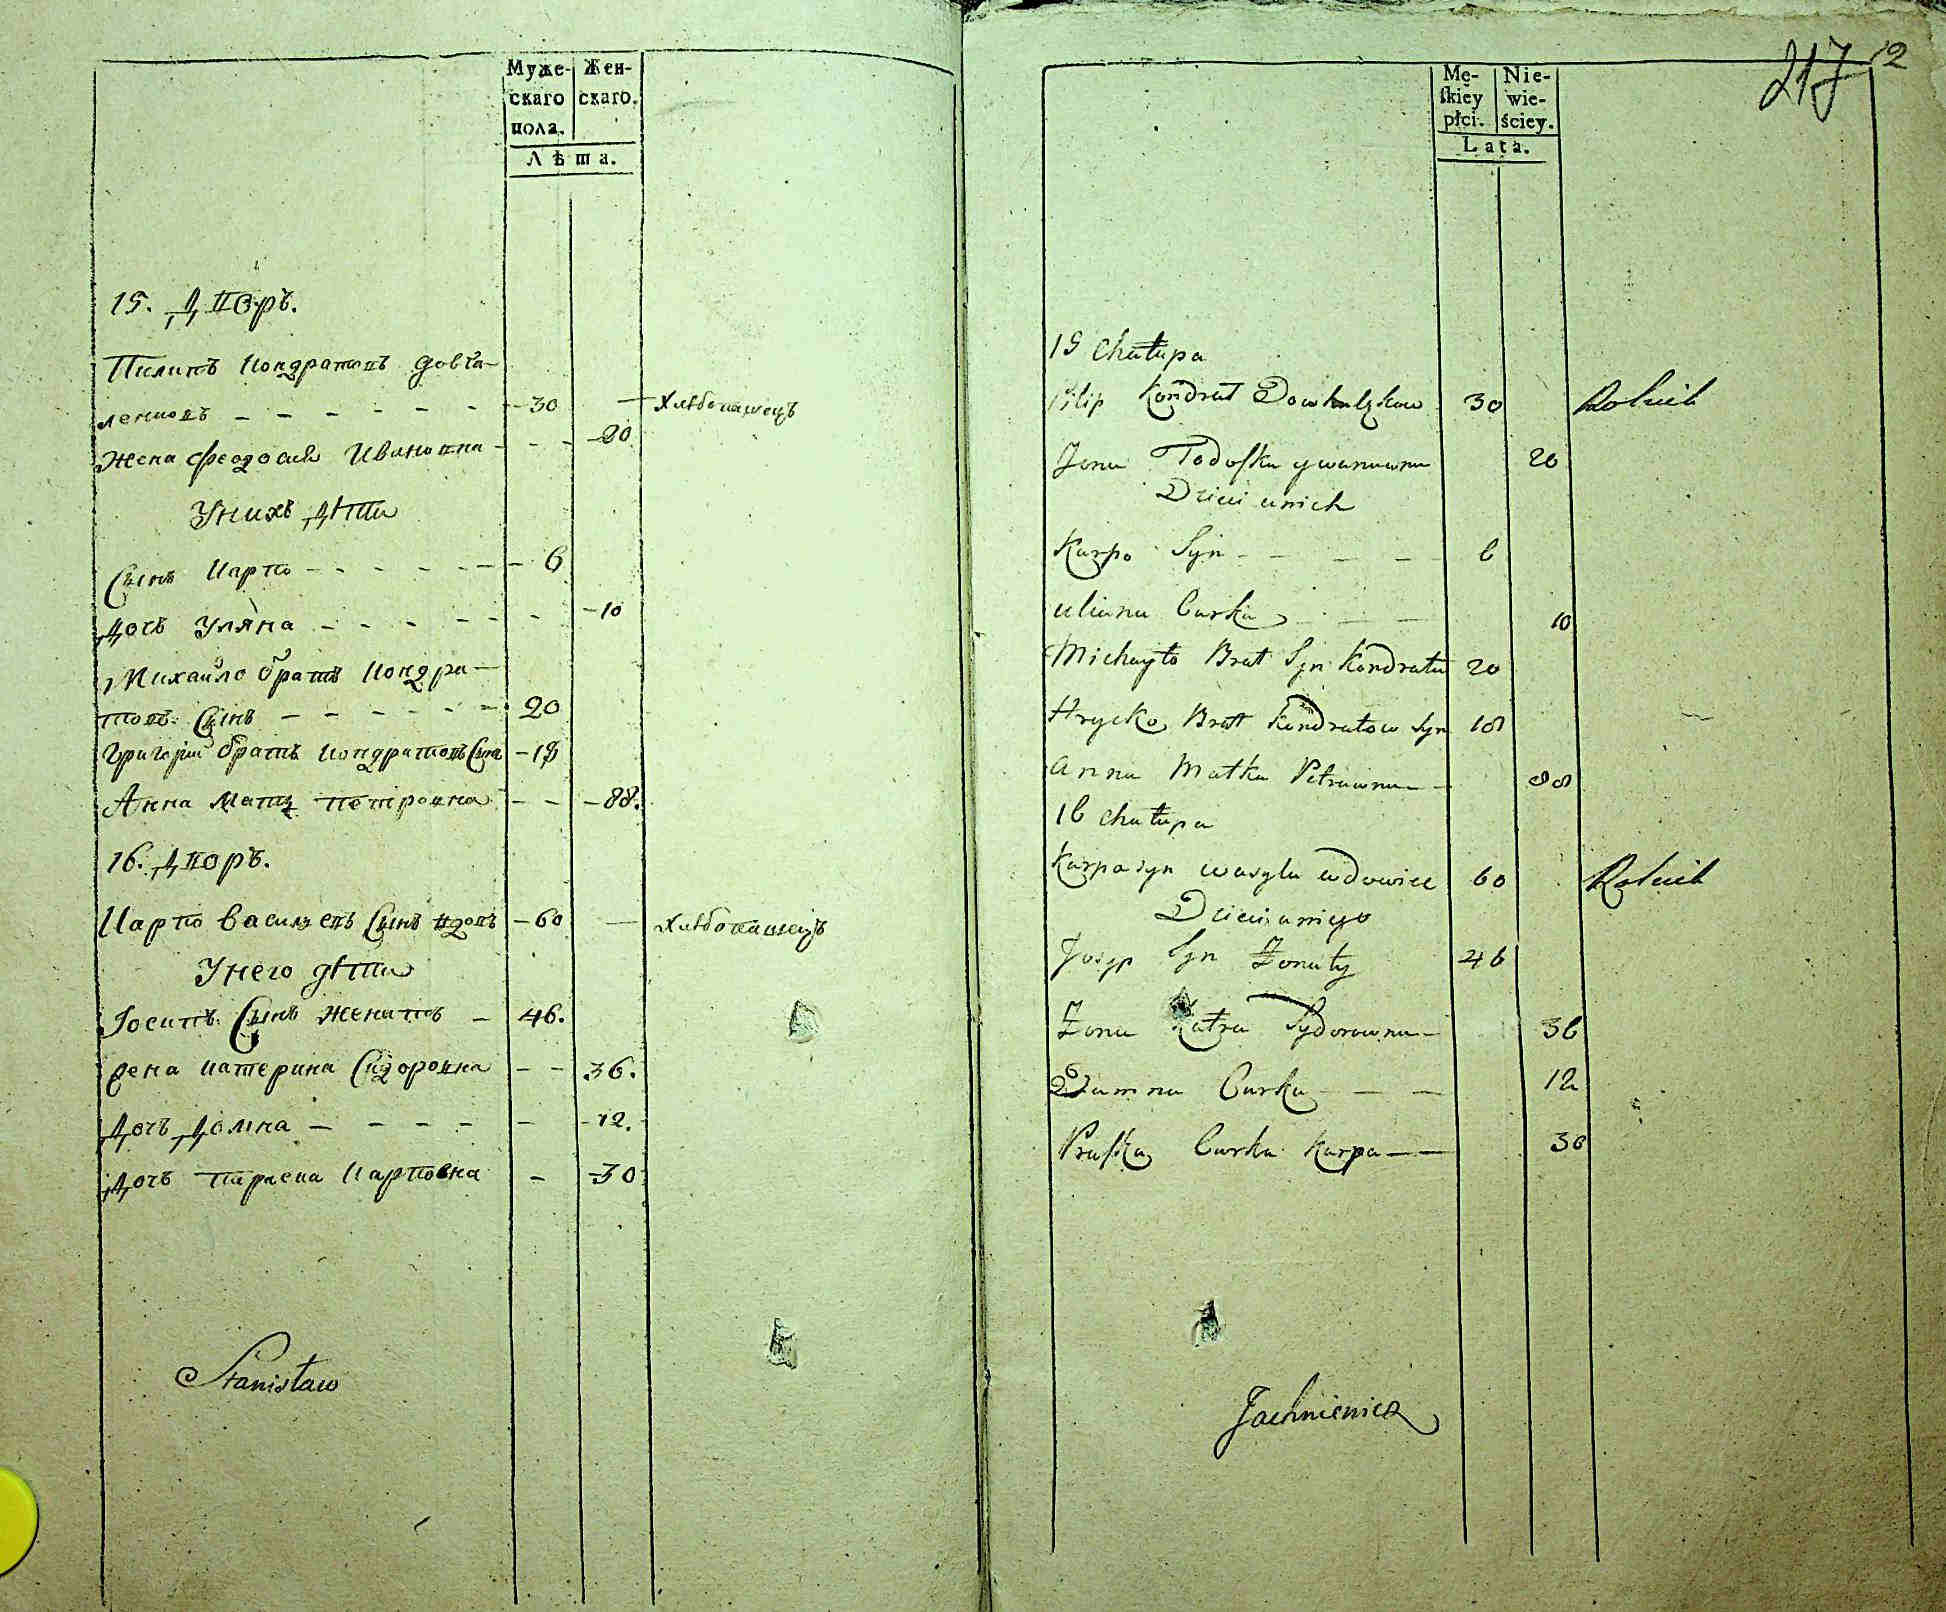 Муже- Жен-
скаго скаго.
пола.
Лѣта.
15. Дворъ.
Пилипъ Кондратовъ довга-
ленковъ - - - - - - 30 — Хлѣбопашецъ
Жена Феодосия Ивановна - - - 20
У нихъ дѣти
Сынъ Карпо - - - - - - 6
Дочъ Уляна - - - - - - 10
Михайло братъ Кондра-
товъ Сынъ - - - - - - 20
Григорий братъ Кондратовъ Сынъ - 18
Анна Мать Петровна - - - 88.
16. Дворъ.
Карпо Василевъ Сынъ вдовъ - 60 — Хлѣбопашецъ
У него дѣти
Иосипъ Сынъ Женатъ - 46.
жена Катерина Сидоровна - - 36.
Дочъ Домна - - - - - 12.
Дочъ Параска Карповна - 30
Stanisław
217 12
Mę- Nie-
skiey wie-
płci. ściey.
Lata.
15 Chałupa
Filip Kondrat 30 Rolnik
Żona Todoska ywanowna 20
Dzieci u nich
Karpo Syn - - - - 6
uliana Curka - - - 10
Michayło Brat Syn Kondratu 20
Hrycko Brat Kondratow Syn 18
anna Matka Petrowna - - 88
16 chałupa
Karpo syn wasyla wdowiec 60 Rolnik
Dzieci u niego
Josyp Syn Żonaty 46
Żona Katra Sydorowna - 36
Damna Curka - - - 12
Praska Curka Karpa - - 30
Jachniewicz